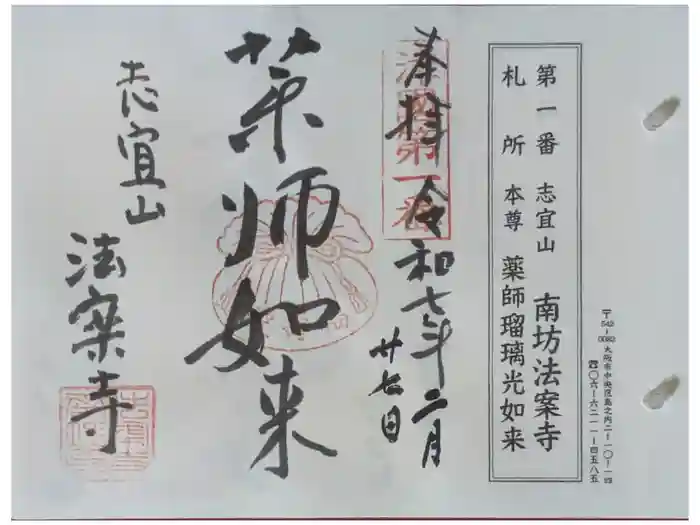 第一番 志宜山 南坊法案寺
札所 本尊 薬師瑠璃光如来
〒542-0082 大阪市中央区島之内二-一〇-一四
☎〇六-六二一一-四五八五
奉拝 令和七年二月
廿七日
第一番
薬師如来
志宜山
法案寺